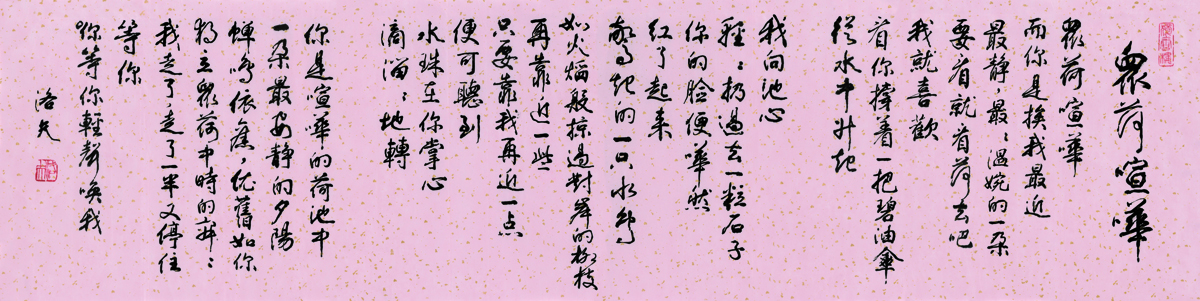 眾荷喧嘩
眾荷喧嘩
而你是挨我最近
最静,最:溫婉的一朵
要看就看荷去吧
我就喜歡
看你撐着一把碧油傘
從水中升起
我向池心
輕:扔過去一粒石子
你的臉便嘩然
紅了起來
驚起的一只水鳥
如火焰般掠過對岸的柳枝
再靠近一些
只要靠我再近一点
便可聽到
水珠在你掌心
滴溜:地轉
你是喧嘩的荷池中
一朵最安静的夕陽
蟬鳴依舊,依舊如你
獨立眾荷中時的寂:
我走了,走了一半又停住
等你
等你輕聲喚我
洛夫